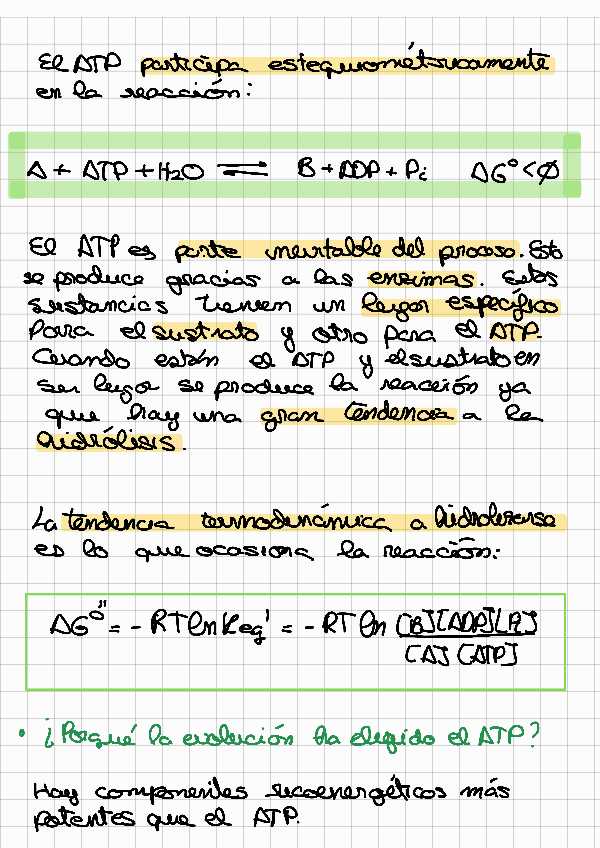 El ATP participa estequiométricamente
en la reacción:
A + ATP + H₂O ⇌ B + ADP + Pi ΔG° < 0
El ATP es parte inevitable del proceso. Esto
se produce gracias a las enzimas. Estas
sustancias tienen un lugar específico
para el sustrato y otro para el ATP.
Cuando están el ATP y el sustrato en
su lugar se produce la reacción ya
que hay una gran tendencia a la
hidrólisis.
La tendencia termodinámica a hidrolizarse
es lo que ocasiona la reacción:
ΔG°'' = - RT ln Keq' = - RT ln [B][ADP][Pi]
[A] [ATP]
• ¿Porqué la evolución ha elegido el ATP?
Hay componentes ricoenergéticos más
potentes que el ATP.